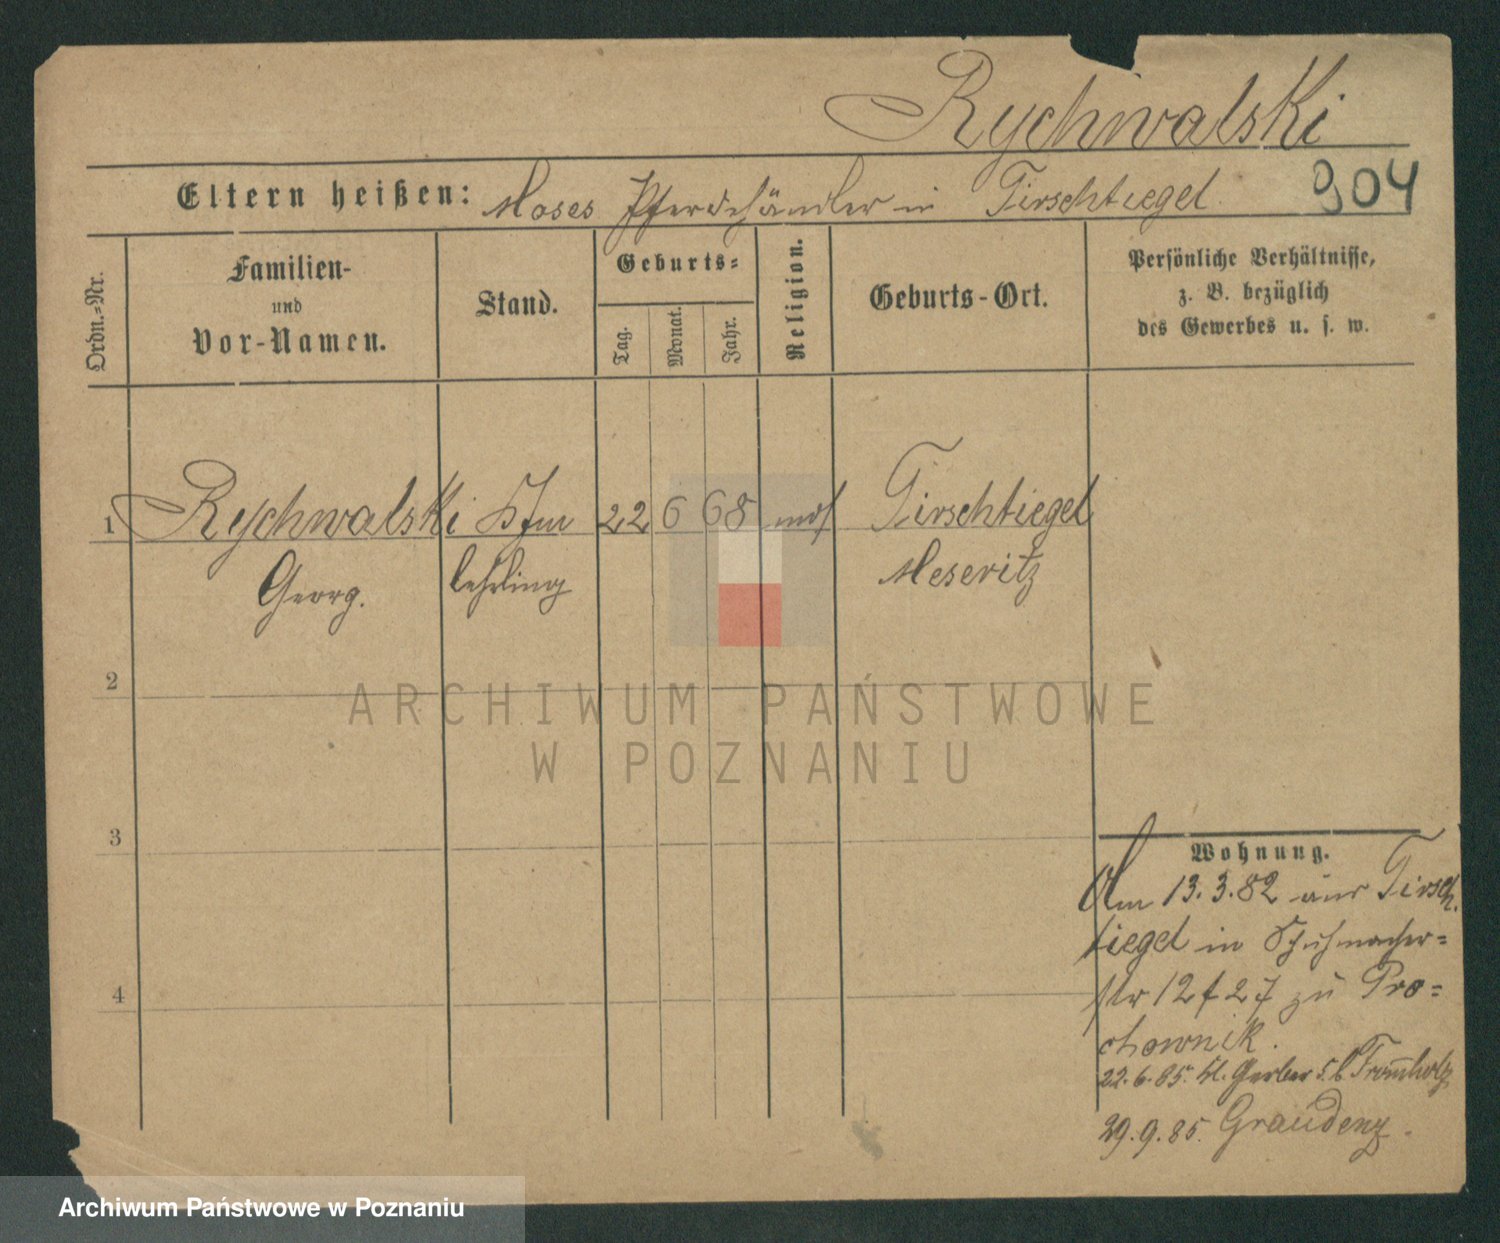 Rychwalski
Eltern heißen: Moses Pferdehändler in Tirschtiegel 904
Ordn.-Nr.
Familien-
und
Vor-Namen.
Stand.
Geburts-
Tag.
Monat.
Jahr.
Religion.
Geburts-Ort.
Persönliche Verhältnisse,
z. B. bezüglich
des Gewerbes u. s. w.
1 Rychwalski Kfm 22 6 68 mos Tirschtiegel
Georg. lehrling Meseritz
2
ARCHIWUM PAŃSTWOWE
W POZNANIU
3
4
Wohnung.
Am 13.3.82 aus Tirsch
tiegel in Schuhmacher=
str 12 f 27 zu Pro=
chownik.
22.6.85. Kl. Gerber 5. b. Fromholz
29.9.85. Graudenz.
Archiwum Państwowe w Poznaniu